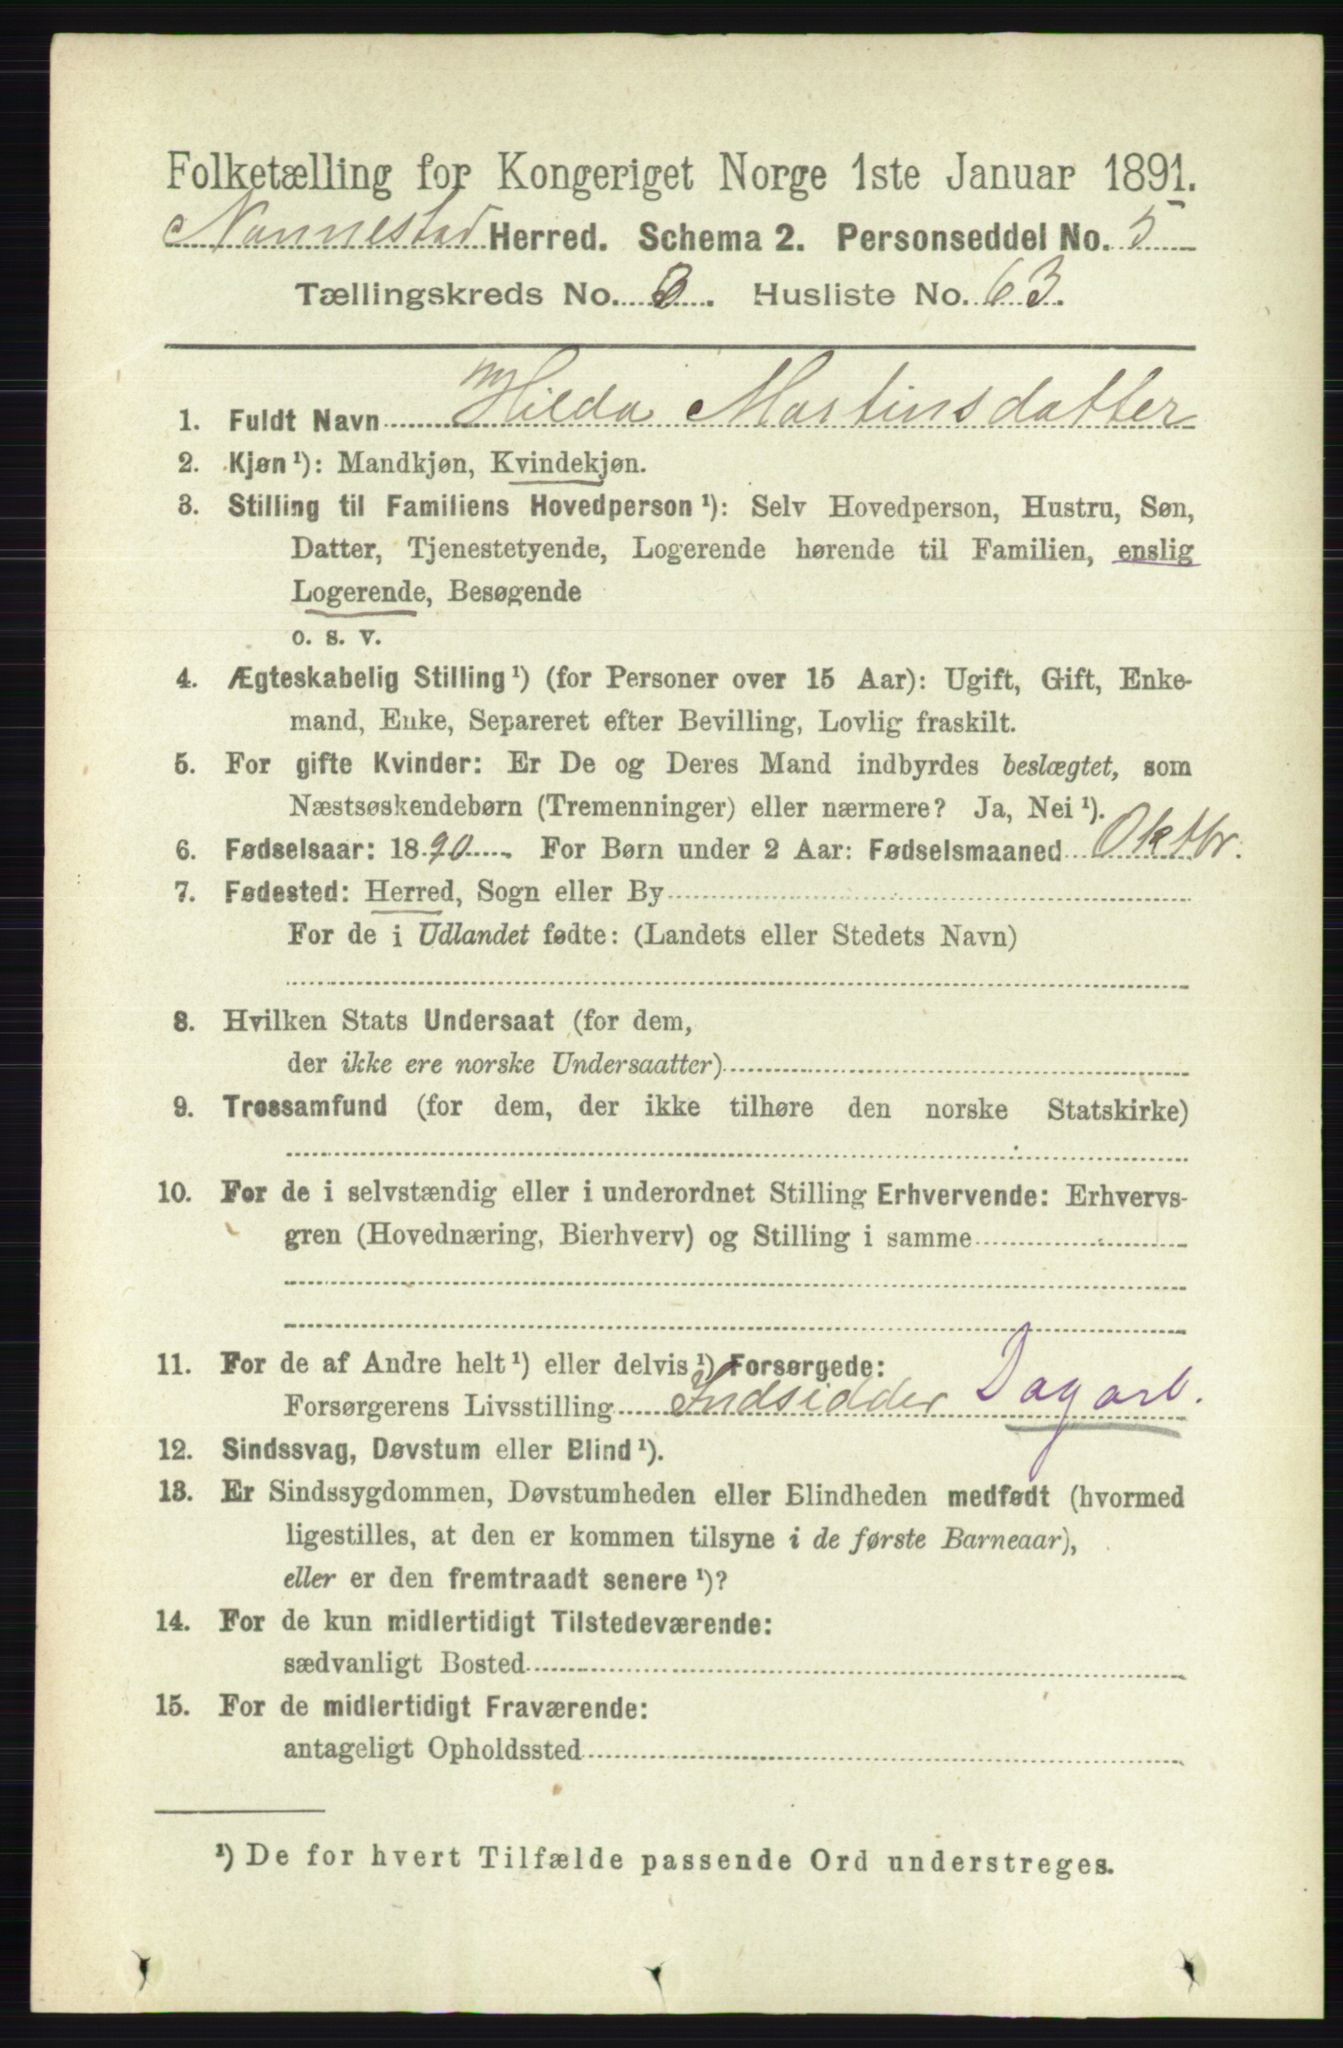 Folketælling for Kongeriget Norge 1ste Januar 1891.
Nannestad Herred. Schema 2. Personseddel No. 5
Tællingskreds No. 3. Husliste No. 63.
1. Fuldt Navn Hilda Martinsdatter
2. Kjøn ¹): Mandkjøn, Kvindekjøn.
3. Stilling til Familiens Hovedperson ¹): Selv Hovedperson, Hustru, Søn,
Datter, Tjenestetyende, Logerende hørende til Familien, enslig
Logerende, Besøgende
o. s. v.
4. Ægteskabelig Stilling ¹) (for Personer over 15 Aar): Ugift, Gift, Enke-
mand, Enke, Separeret efter Bevilling, Lovlig fraskilt.
5. For gifte Kvinder: Er De og Deres Mand indbyrdes beslægtet, som
Næstsøskendebørn (Tremenninger) eller nærmere? Ja, Nei ¹).
6. Fødselsaar: 1890. For Børn under 2 Aar: Fødselsmaaned Oktbr.
7. Fødested: Herred, Sogn eller By
For de i Udlandet fødte: (Landets eller Stedets Navn)
8. Hvilken Stats Undersaat (for dem,
der ikke ere norske Undersaatter)
9. Trossamfund (for dem, der ikke tilhøre den norske Statskirke)
10. For de i selvstændig eller i underordnet Stilling Erhvervende: Erhvervs-
gren (Hovednæring, Bierhverv) og Stilling i samme
11. For de af Andre helt ¹) eller delvis ¹) Forsørgede:
Forsørgerens Livsstilling Indsidder Dagarb.
12. Sindssvag, Døvstum eller Blind ¹).
13. Er Sindssygdommen, Døvstumheden eller Blindheden medfødt (hvormed
ligestilles, at den er kommen tilsyne i de første Barneaar),
eller er den fremtraadt senere ¹)?
14. For de kun midlertidigt Tilstedeværende:
sædvanligt Bosted
15. For de midlertidigt Fraværende:
antageligt Opholdssted
¹) De for hvert Tilfælde passende Ord understreges.